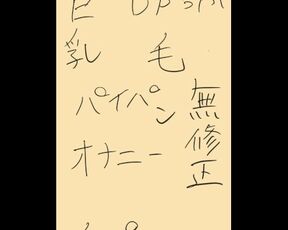 巨
乳
毛
パイパン
無修正
オナニー